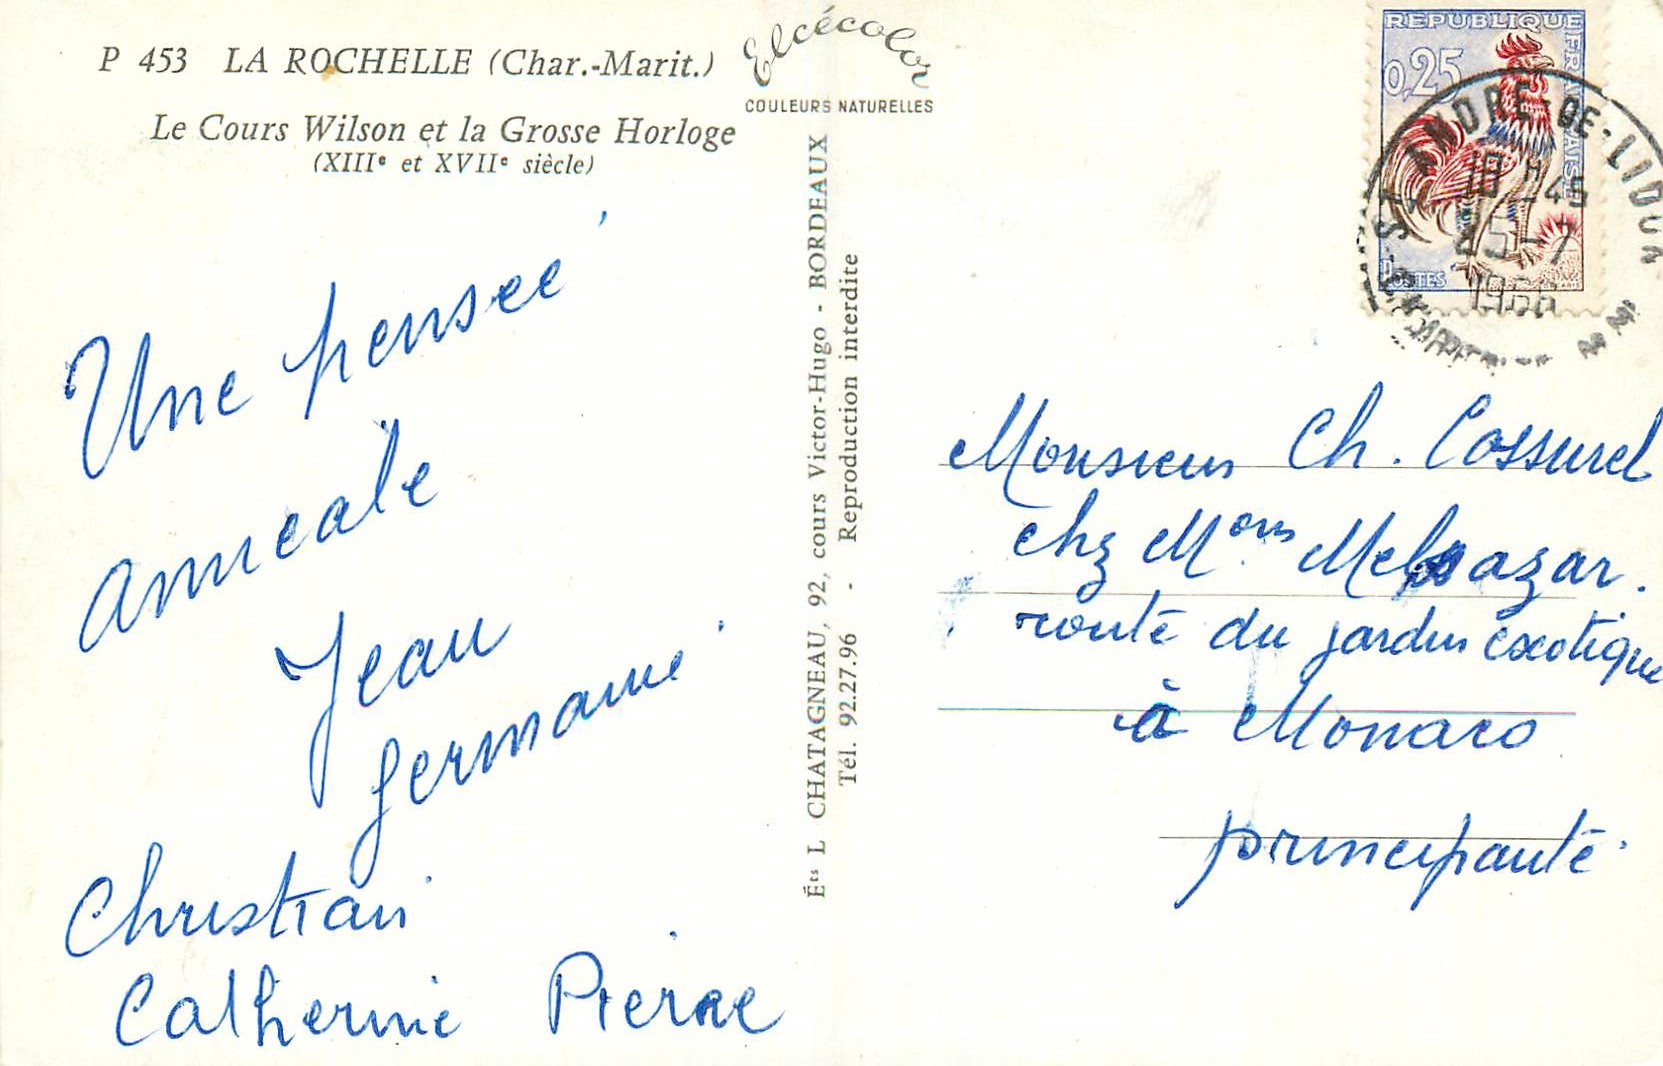 P 453 LA ROCHELLE (Char.-Marit.)
Le Cours Wilson et la Grosse Horloge
(XIIIᵉ et XVIIᵉ siècle)
Elcécolor
COULEURS NATURELLES
Une pensée
amicale
Jean
Germaine
Christian
Catherine Pierre
Éᵗˢ L CHATAGNEAU, 92, cours Victor-Hugo - BORDEAUX
Tél. 92.27.96 - Reproduction interdite
REPUBLIQUE FRANÇAISE
0,25
POSTES
ST ANDRE-DE-LIDON
18 H 45
25-7
1966
Monsieur Ch. Cossurel
chez Mᵒⁿˢ
route du jardin exotique
à Monaco
principauté